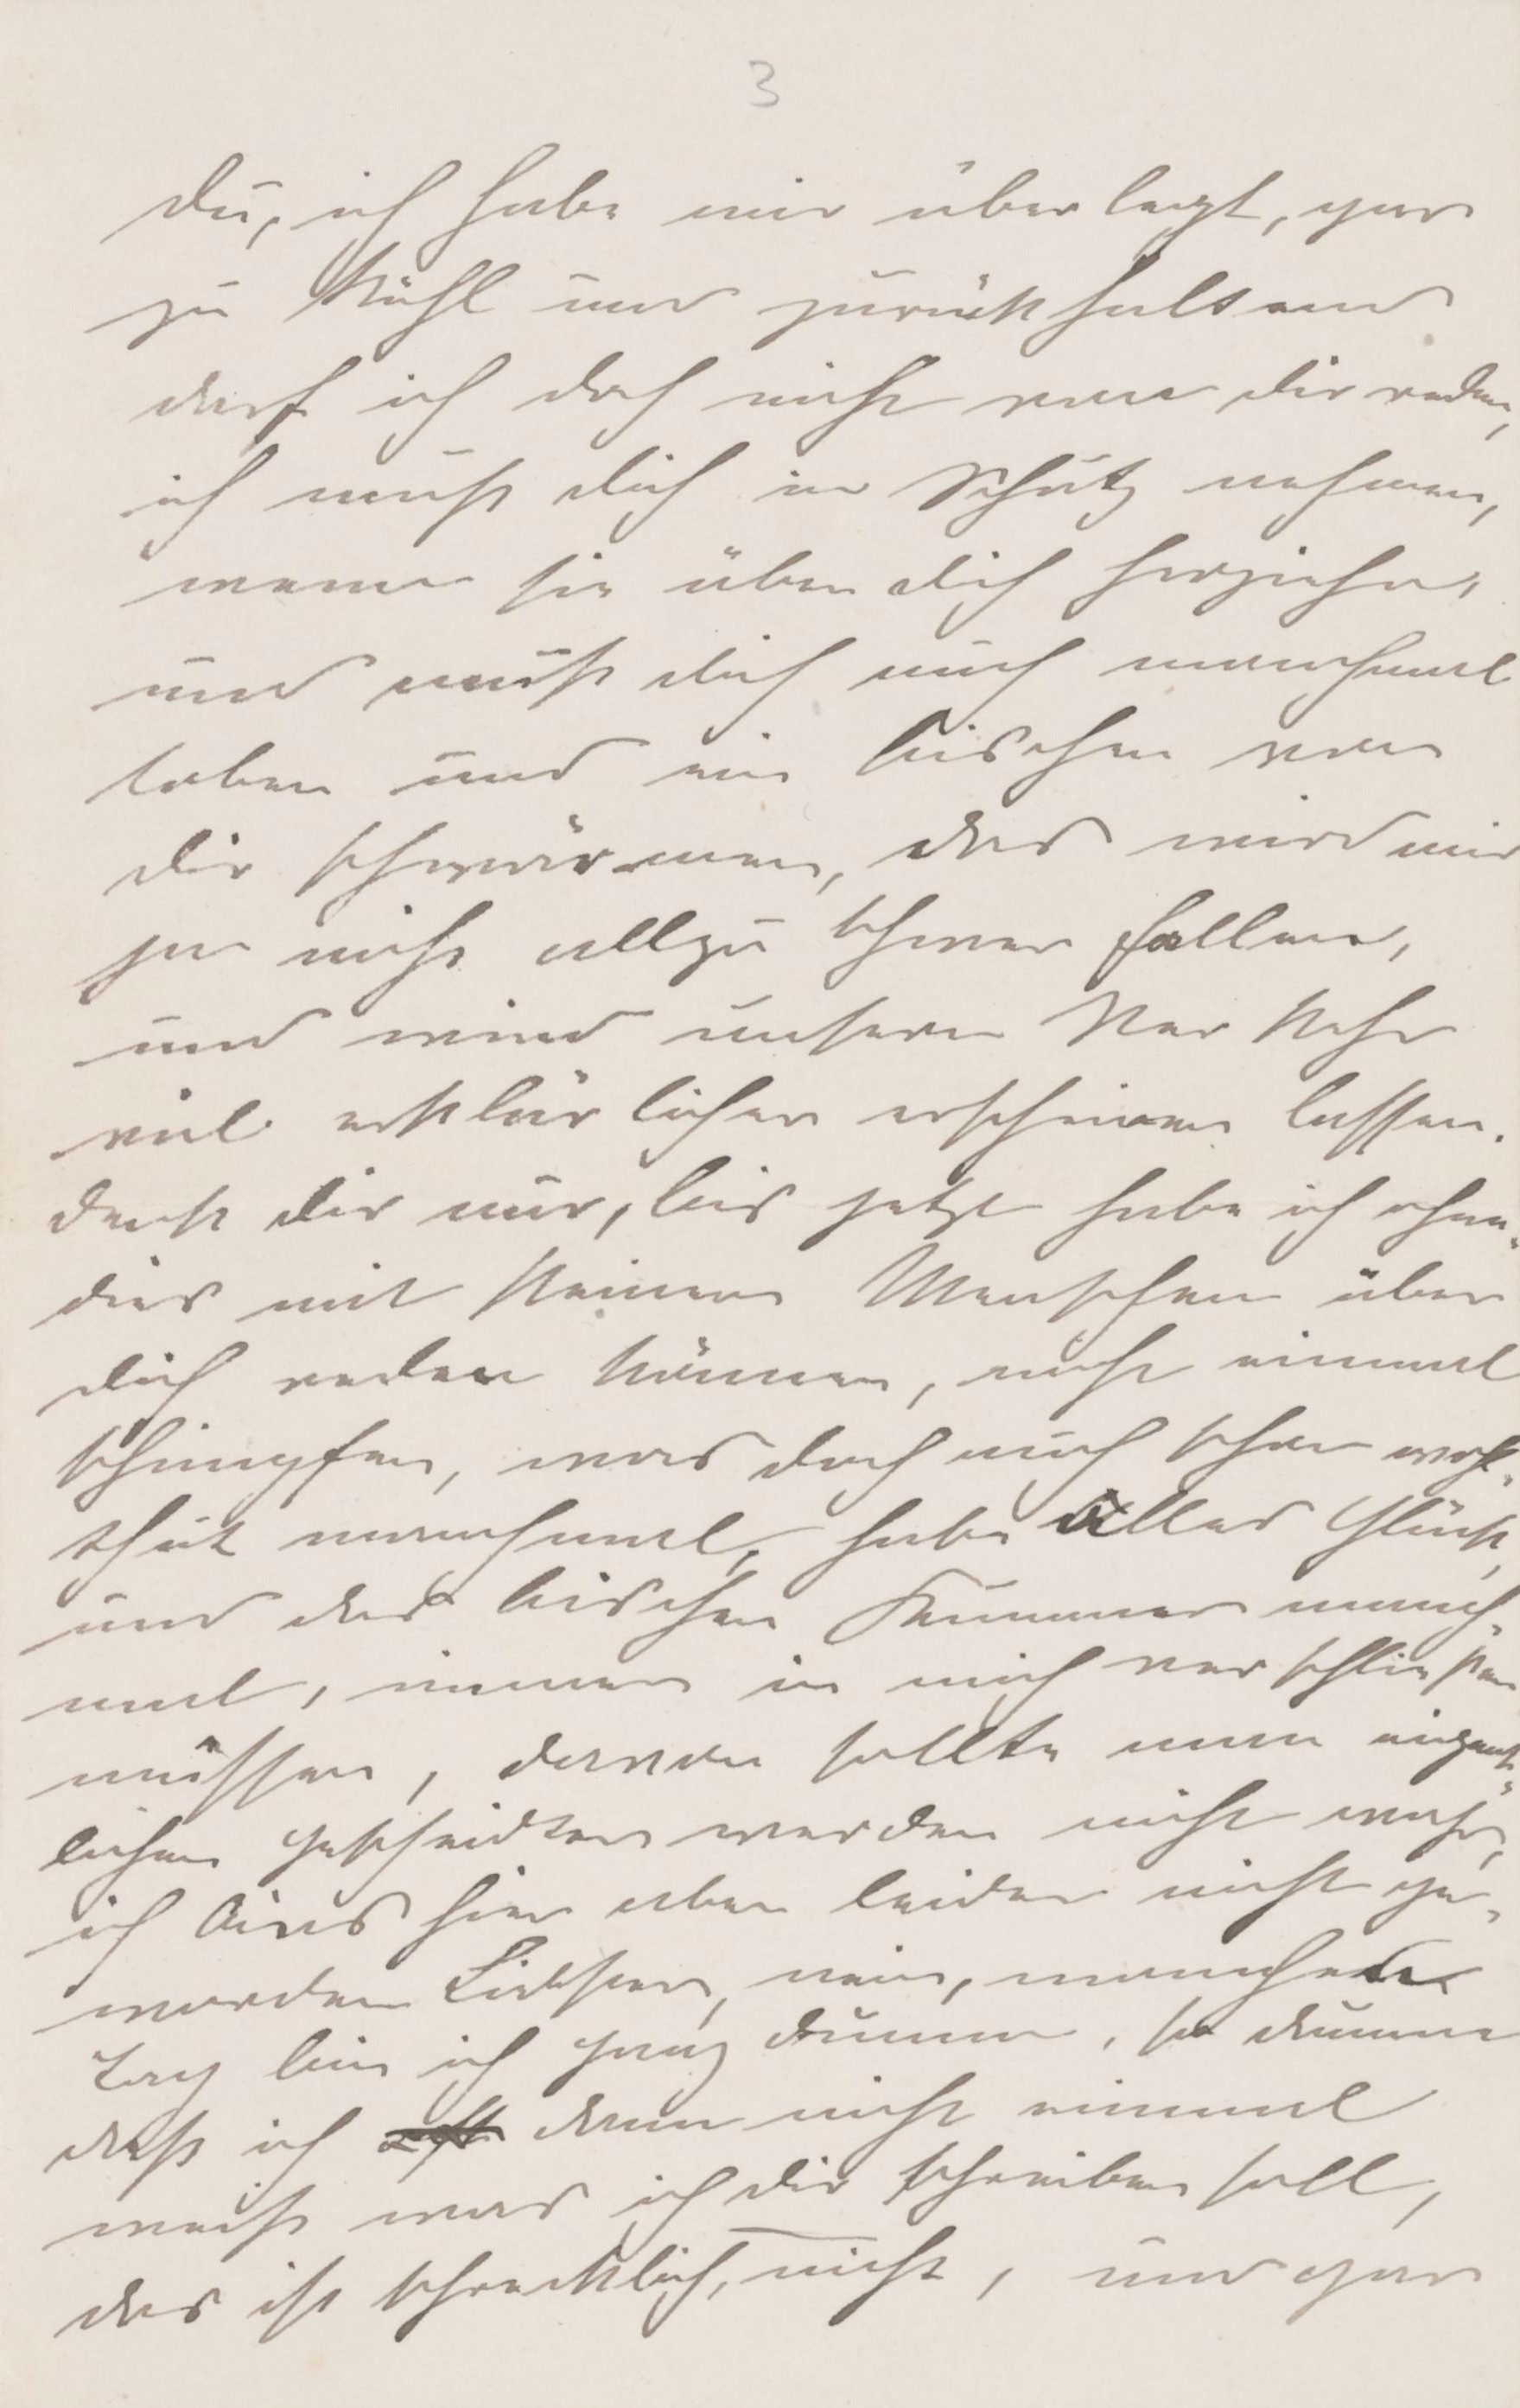 3
du, ich habe mir überlegt, gar
zu kühl und zurückhaltend
darf ich doch nicht von dir reden,
ich muß dich in Schutz nehmen,
wenn sie über dich herziehn,
und muß dich auch manchmal
loben und ein bischen von
dir schwärmen, das wird mir
ja nicht allzu schwer fallen,
und wird unsern Verkehr
viel erklärlicher erscheinen lassen.
denk dir nur, bis jetzt habe ich ohne-
dies mit keinem Menschen über
dich reden können, nicht einmal
schimpfen, was doch auch schon wohl-
thut manchmal, habe alles Glück,
und das bischen Kummer manch-
mal, immer in mich verschließen
müssen, davon sollte man eigent-
lichen gescheidter werden nicht wahr,
ich bins hier aber leider nicht ge-
worden Liebster, nein, manchen
Tag bin ich ganz dumm, so dumm
daß ich dann nicht einmal
weiß was ich dir schreiben soll,
das ist schrecklich, nicht, und gar